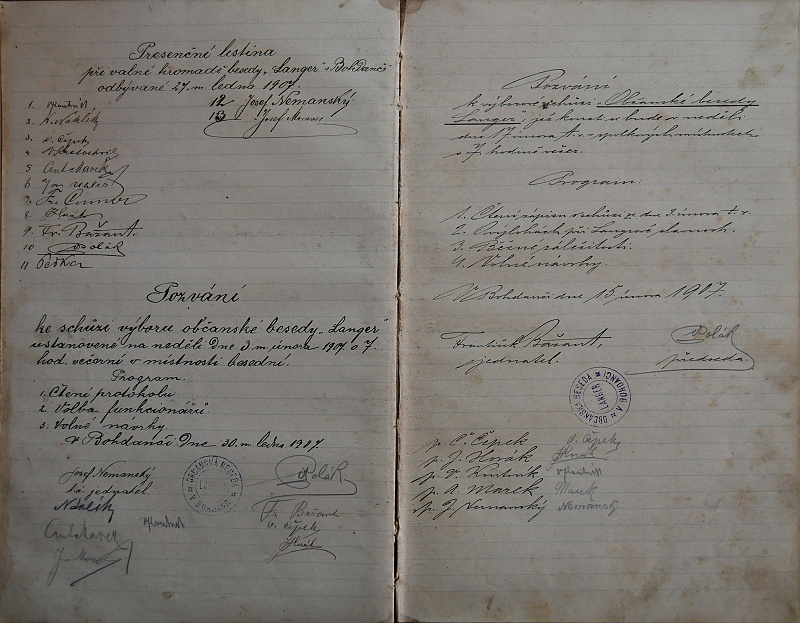 Presenční listina
při valné hromadě besedy „Langer" v Bohdanči
odbývané 27. m. ledna 1907.
1.
2. K. Náhlík
3. . Čepek
4.
5 Ant. Marek
6
7.
8. Horák
9. Fr. Bažant.
10 Polák
11
12 Josef Nemanský
13 Josef Moravec
Pozvání
ke schůzi výboru občanské besedy „Langer"
ustanovené na neděli Dne 3. m. února 1907 o 7.
hod. večerní v místnosti besední.
Program.
1. Čtení protokolu
2. Volba funkcionářů.
3. Volné návrhy
v Bohdanči Dne 30. m. ledna 1907.
Josef Nemanský
t. č. jednatel.
Polák
OBČANSKÁ BESEDA
Náhlík
Fr. Bažant
Ant. Marek
Čepek
Horák
Pozvání
k výborové schůzi „Občanské besedy
Langer", jež konati se bude v neděli
dne 17. února t. r. v spolkových místnostech
o 7. hodině večer.
Program:
1. Čtení zápisu o schůzi ze dne 3. února t. r.
2. O výlohách při Langrově slavnosti.
3. Běžné záležitosti.
4. Volné návrhy.
V Bohdanči dne 15. února 1907.
František Bažant,
jednatel.
Polák
předseda
OBČANSKÁ BESEDA LANGER V BOHDANČI
p. Č. Čepek Čepek
p. J. Horák Horák
p. A. Marek Marek
p. J. Nemanský Nemanský